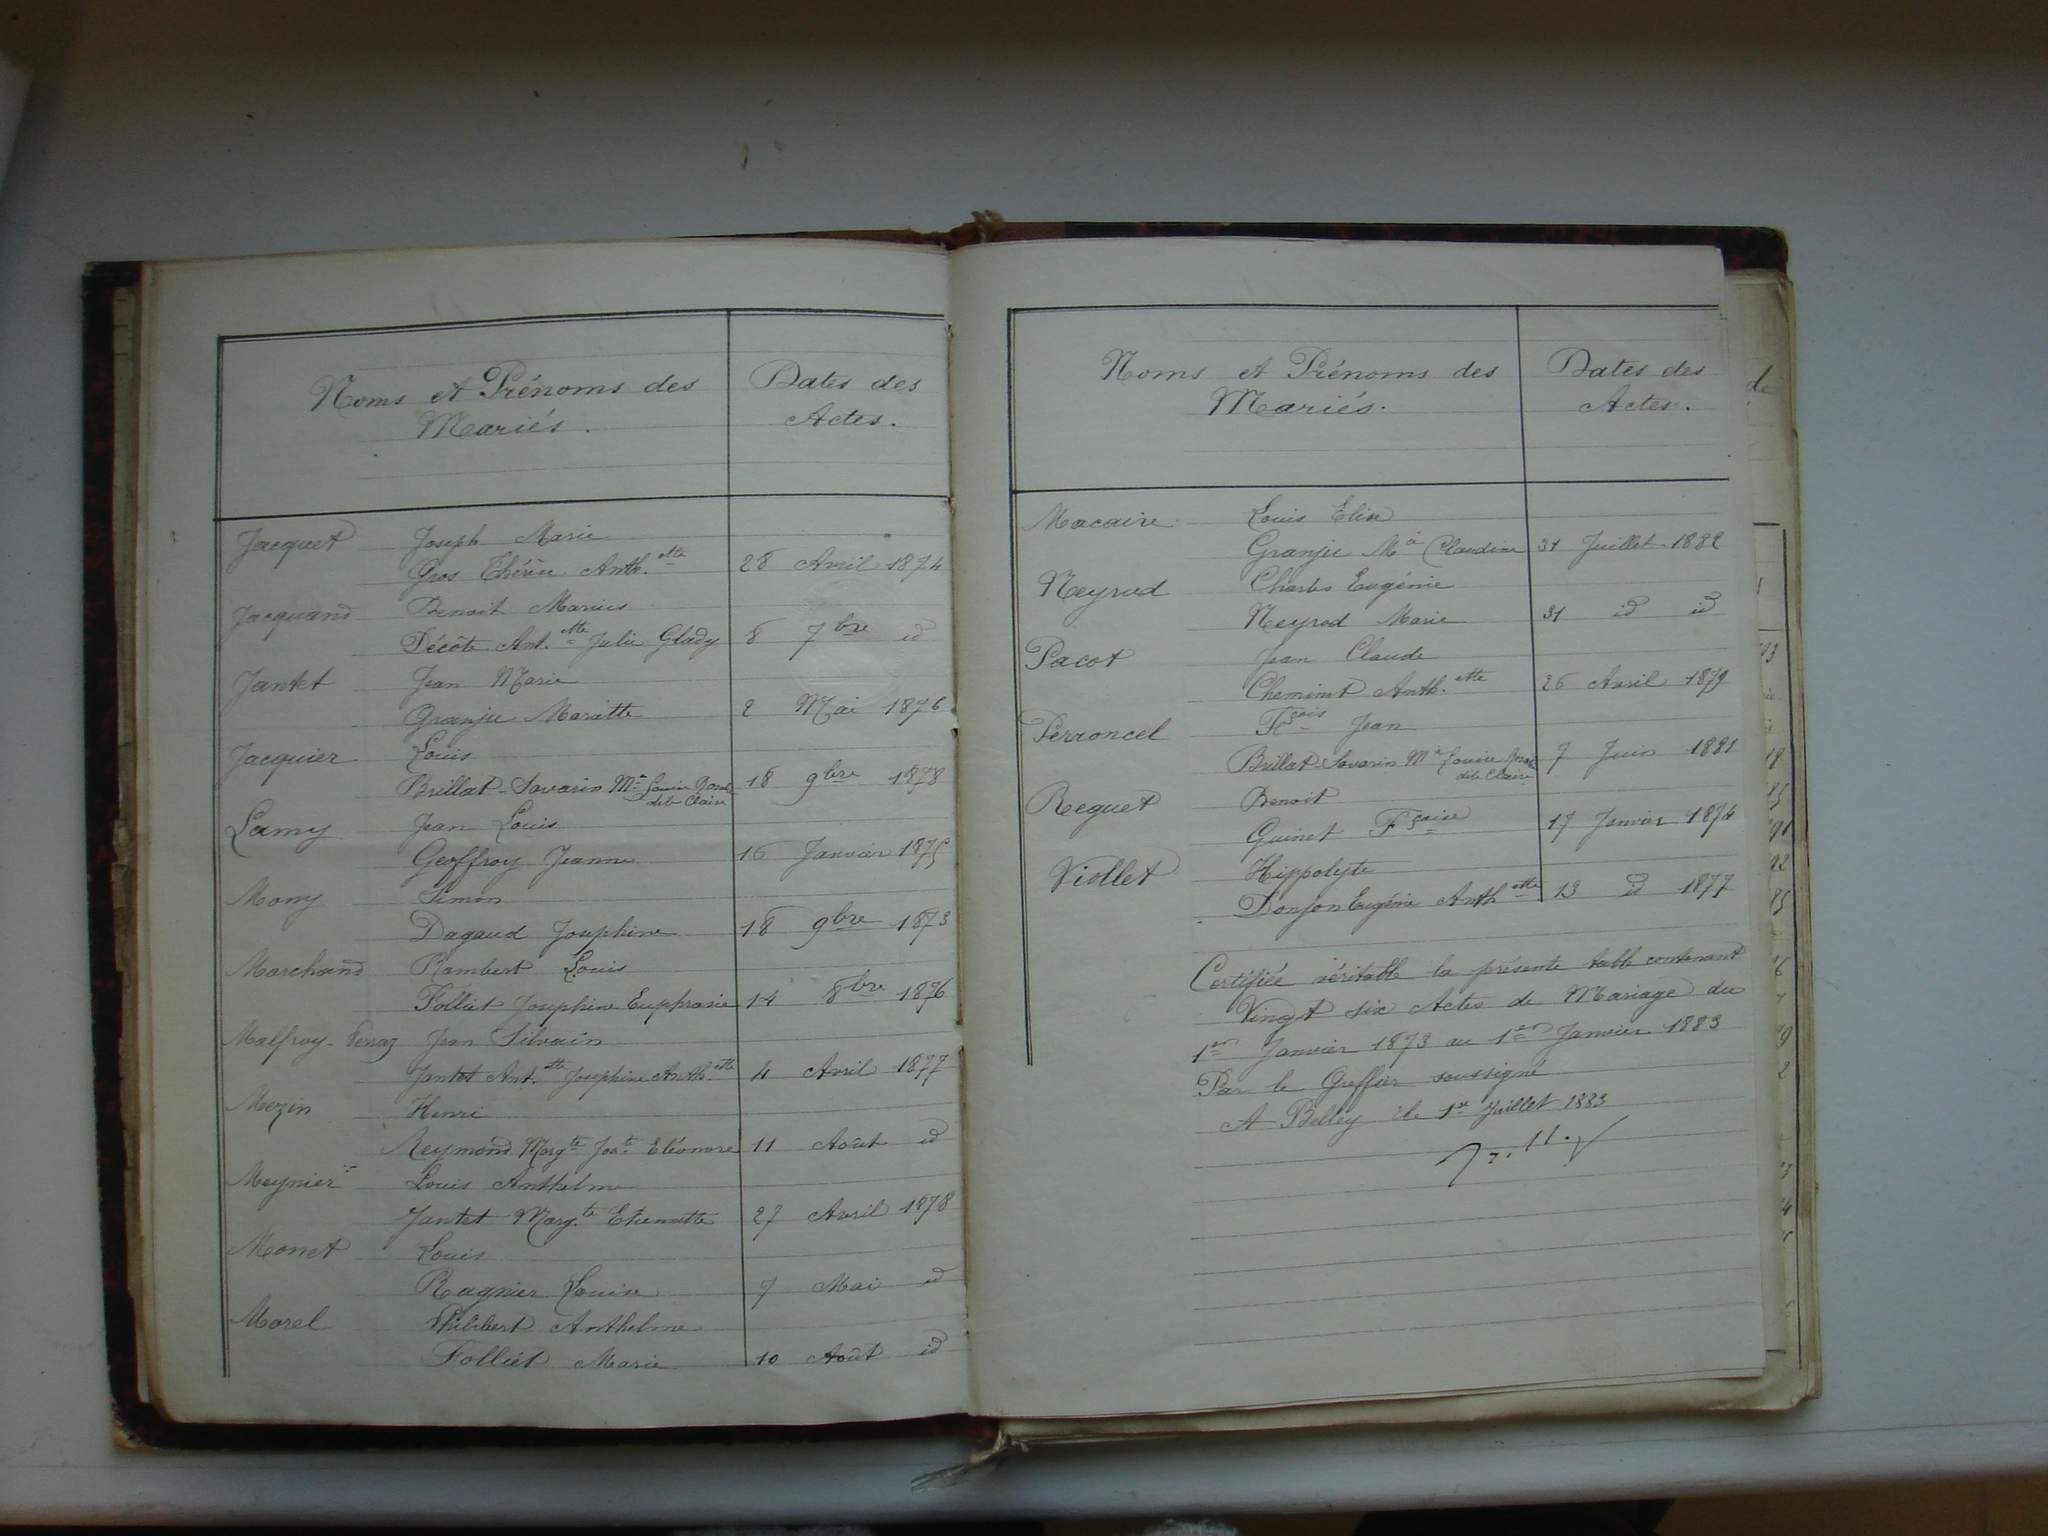 Noms et Prénoms des Mariés. Dates des Actes.
Jacquet Joseph Marie
Gros Thérèse Anth.ette 28 Avril 1874
Jacquand Benoit Marius
Décôte Ant.ette Julie Glady 8 7bre id
Jantet Jean Marie
Granjee Mariette 2 Mai 1876
Jacquier Louis
Brillat-Savarin Mie Louise Rosalie dite Claire 18 9bre 1878
Lamy Jean Louis
Geoffroy Jeanne 16 Janvier 1875
Mony Simon
Dagaud Josephine 18 9bre 1873
Marchand Rambert Louis
Folliet Josephine Euphrasie 14 8bre 1876
Malfroy-Perraz Jean Silvain
Jantet Ant.ette Josephine Anth.ette 4 Avril 1877
Mezin Henri
Reymond Margte Joste Eléonore 11 Août id
Meynier Louis Anthelme
Jantet Marg.te Etiennette 27 Avril 1878
Monet Louis
Ragnier Louise 7 Mai id
Morel Philibert Anthelme
Folliet Marie 10 Août id
Noms et Prénoms des Mariés. Dates des Actes.
Macaire Louis Elise
Granjee Mie Claudine 31 Juillet 1882
Neyrod Charles Eugénie
Neyrod Marie 31 id id
Pacot Jean Claude
Cheminet Anth.ette 26 Avril 1879
Perroncel Fçois Jean
Brillat-Savarin Mie Louise Rosalie dite Claire 7 Juin 1881
Reguet Benoit
Guinet Fçoise 17 Janvier 1874
Viollet Hippolyte
Donjon Eugénie Anthette 13 id 1877
Certifiée véritable la présente table contenant
Vingt six Actes de Mariage du
1er Janvier 1873 au 1er Janvier 1883
Par le Greffier soussigné
A Belley le 1er Juillet 1883